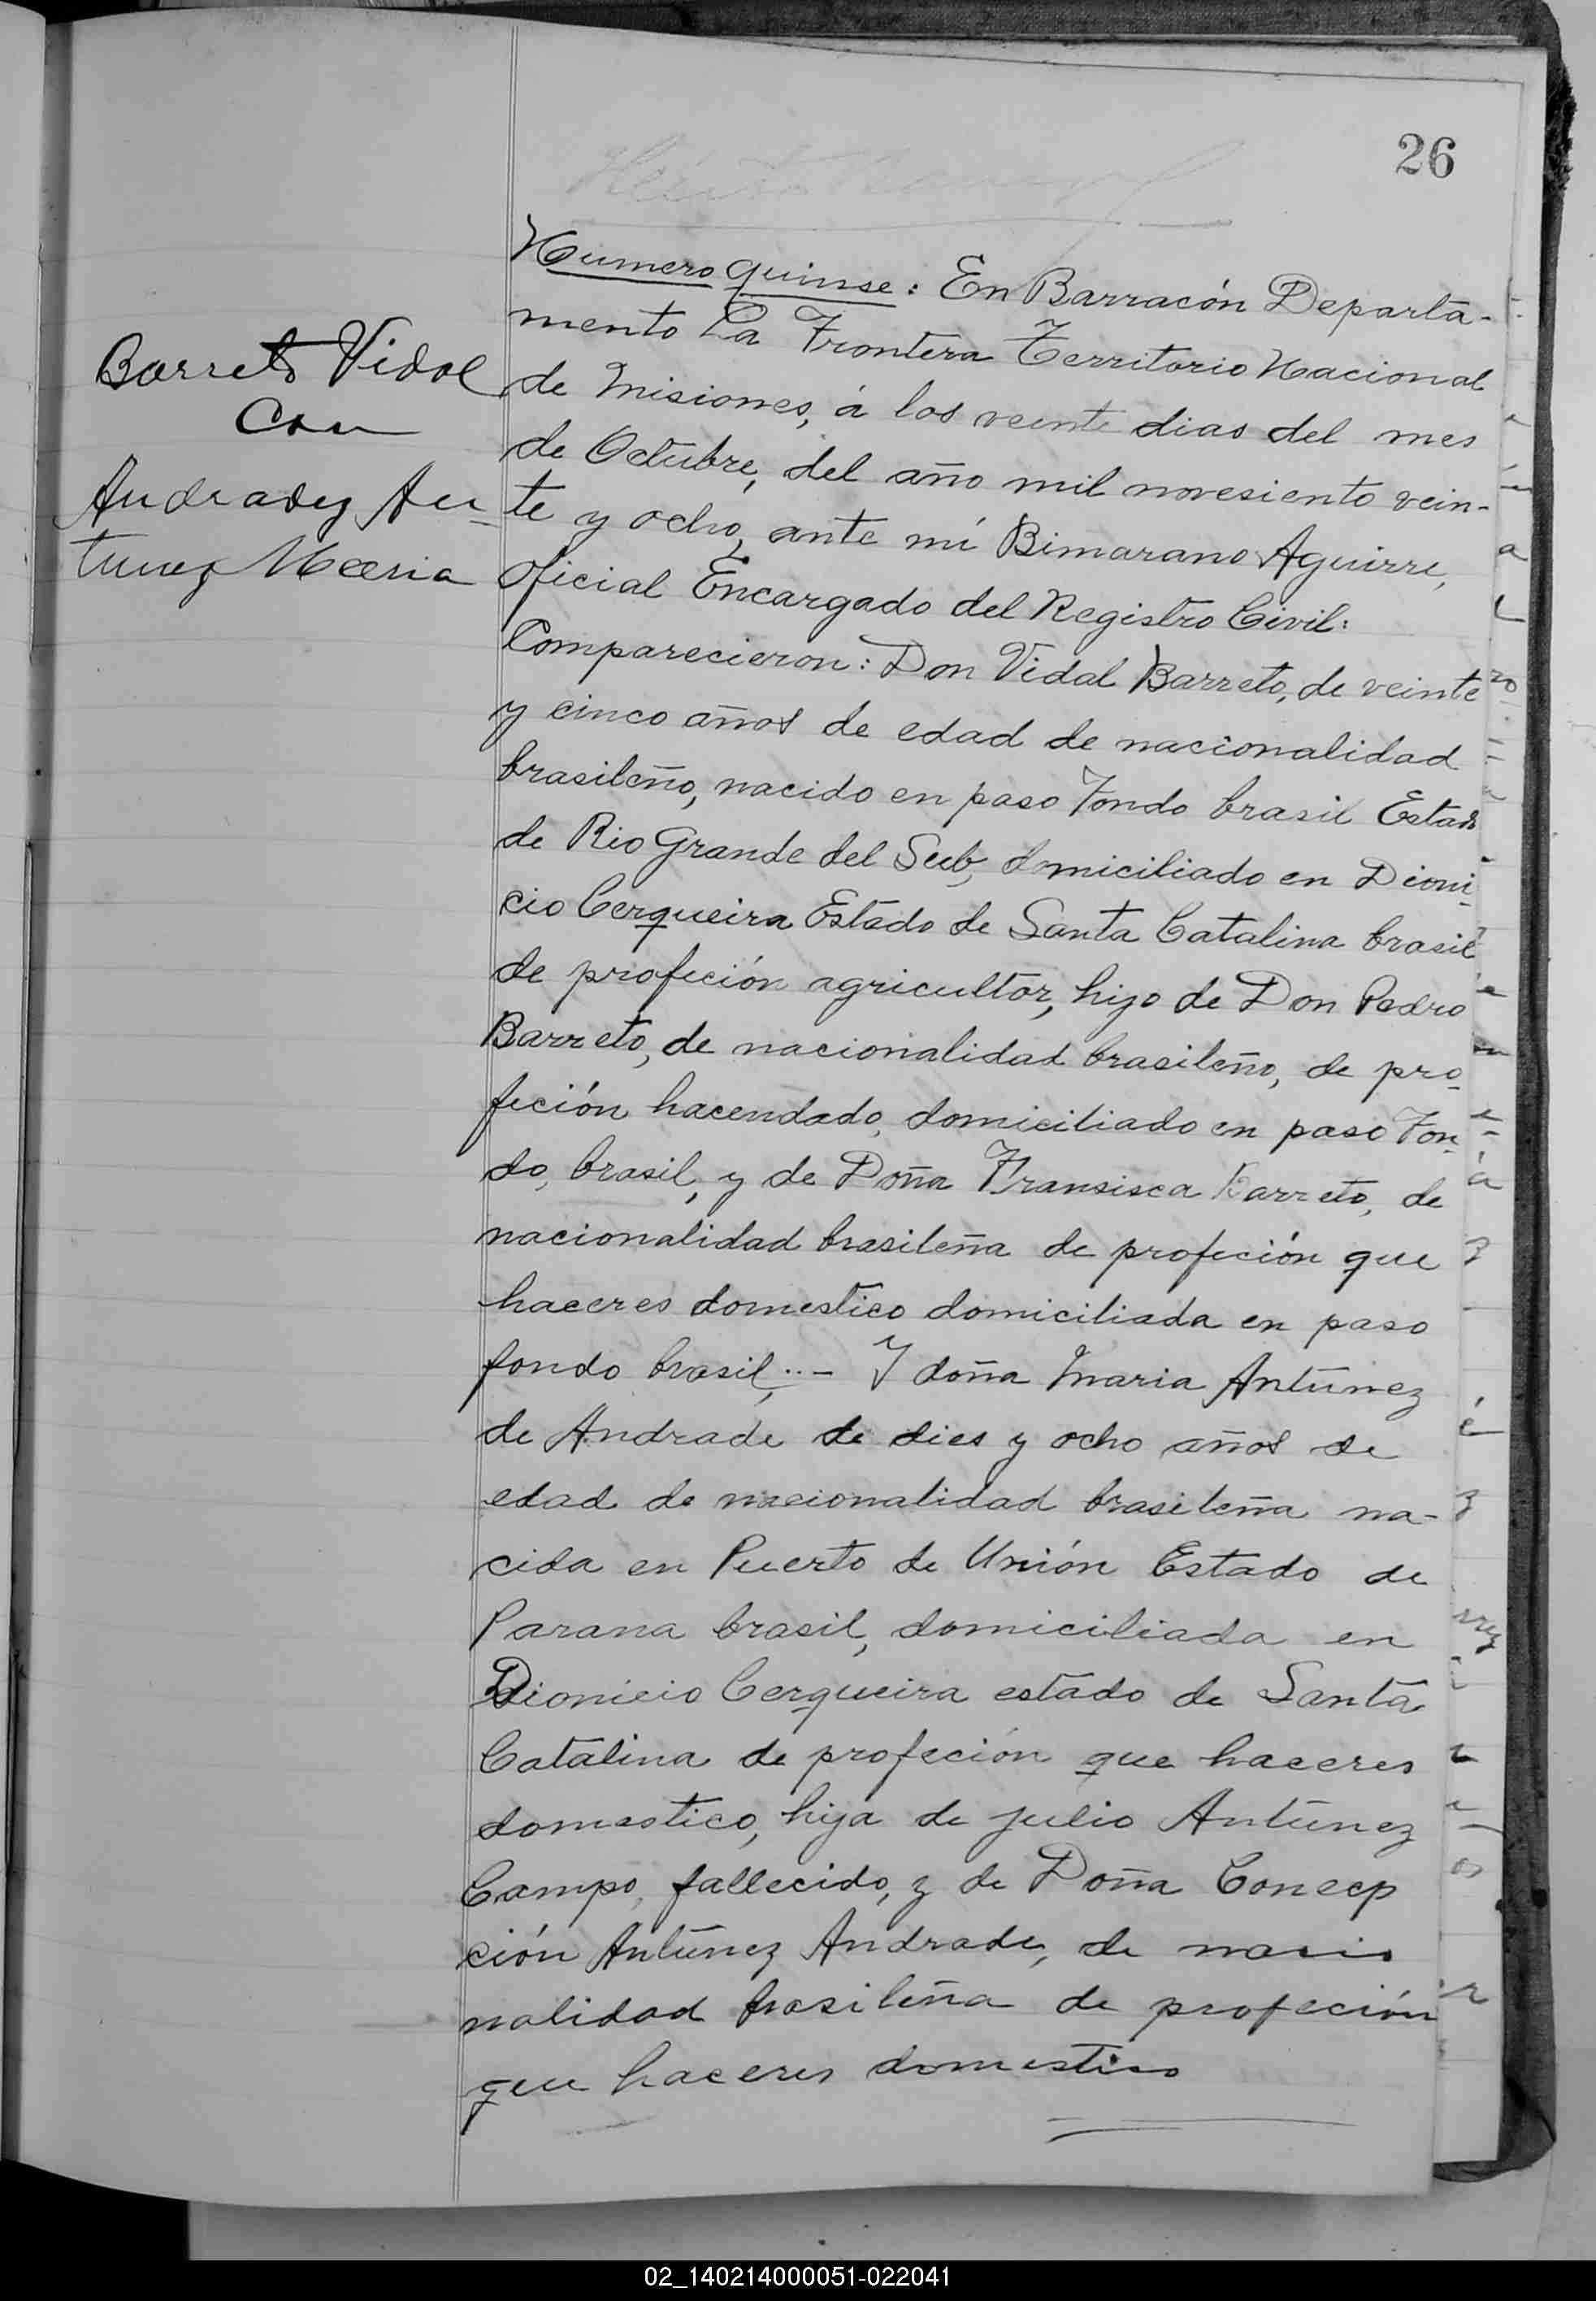 26
Numero quinse: En Barracón Departa-
mento La Frontera Territorio Nacional
de Misiones, á los veinte dias del mes
de Octubre, del año mil novesiento vein-
te y ocho, ante mí Bimarano Aguirre,
Oficial Encargado del Registro Civil:
Comparecieron: Don Vidal Barreto, de veinte
y cinco años de edad de nacionalidad
brasileño, nacido en paso Fondo brasil Estado
de Rio Grande del Sub, domiciliado en Dioni-
cio Cerqueira Estado de Santa Catalina brasil
de profeción agricultor, hijo de Don Pedro
Barreto, de nacionalidad brasileño, de pro-
feción hacendado, domiciliado en paso Fon-
do, brasil, y de Doña Fransisca Barreto, de
nacionalidad brasileña de profeción que
haceres domestico domiciliada en paso
fondo brasil,..- Y doña Maria Antúnez
de Andrade de dies y ocho años de
edad de nacionalidad brasileña na-
cida en Puerto de Unión Estado de
Parana brasil, domiciliada en
Dionicio Cerqueira estado de Santa
Catalina de profeción que haceres
domestico, hija de julio Antúnez
Campo, fallecido, y de Doña Concep
ción Antúnez Andrade, de nasio
nalidad brasileña de profeción
que haceres domestico
Barreto Vidal
Con
Andradez An-
tunez Maria
02_140214000051-022041